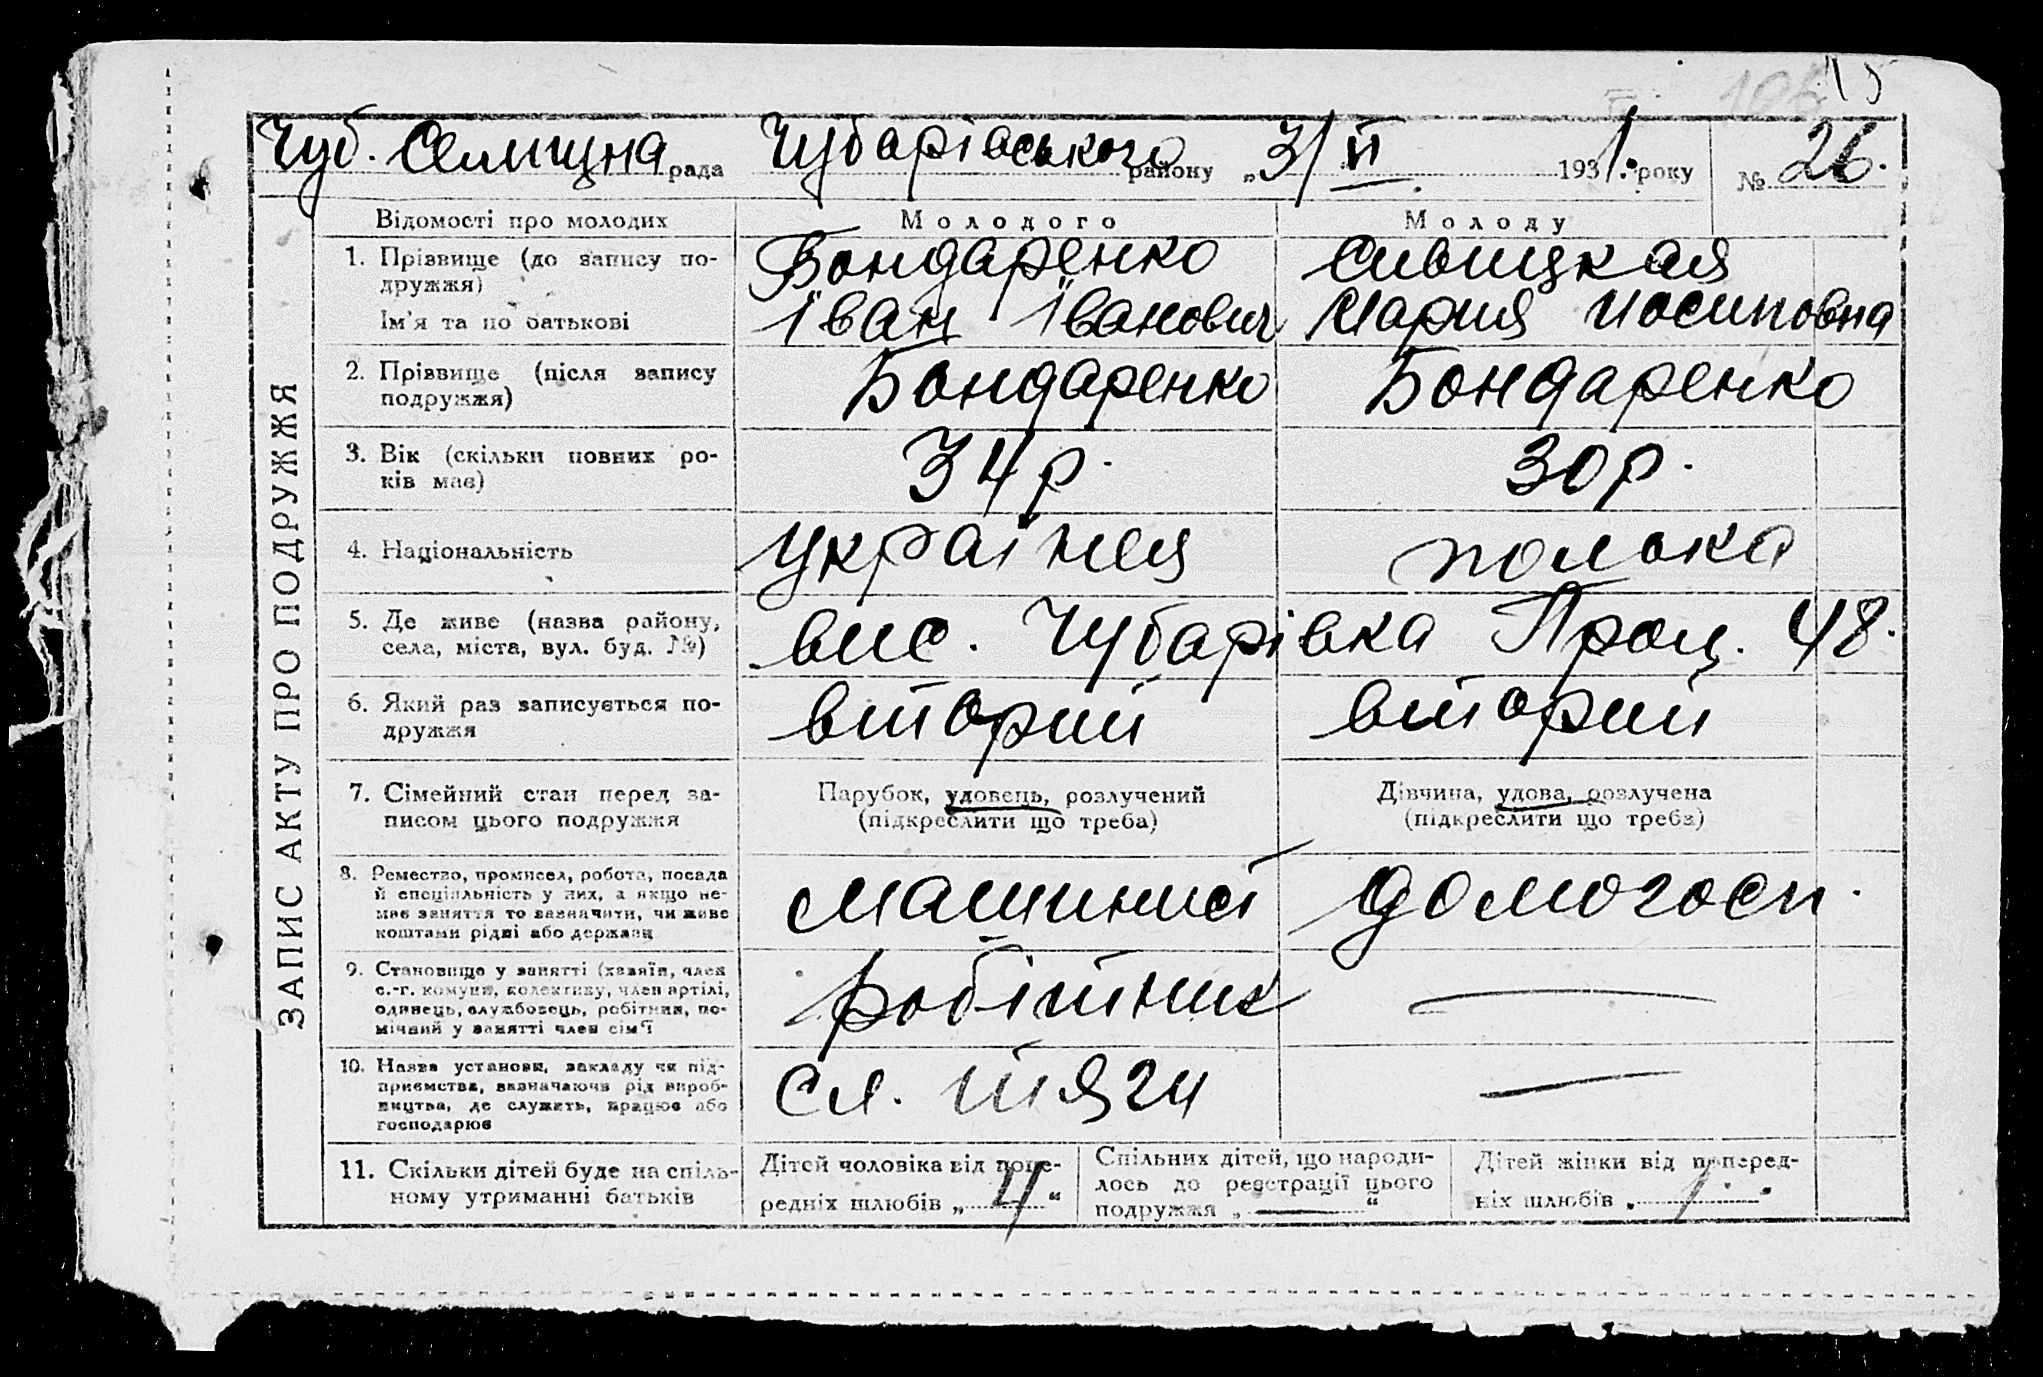 15
Чуб. Селищна рада Чубарівського району „3/ІІ 1931. року № 26.
ЗАПИС АКТУ ПРО ПОДРУЖЖЯ
Відомості про молодих
Молодого
Молоду
1. Прізвище (до запису по-
дружжя)
Ім'я та по батькові
Бондаренко
Іван Іванович
Сивицкая
Мария Иосиповна
2. Прізвище (після запису
подружжя)
Бондаренко
Бондаренко
3. Вік (скільки повних ро-
ків має)
34 р.
30 р.
4. Національність
українец
полька
5. Де живе (назва району,
села, міста, вул. буд. №)
вис. Чубарівка Прол. 48.
6. Який раз записується по-
дружжя
вторий
вторий
7. Сімейний стан перед за-
писом цього подружжя
Парубок, удовець, розлучений
(підкреслити що треба)
Дівчина, удова, розлучена
(підкреслити що треба)
8. Ремество, промисел, робота, посада
й спеціяльність у них, а якщо не-
має заняття то зазначити, чи живе
коштами рідні або держави
машинист
домогосп.
9. Становище у занятті (хазяїн, член
с.-г. комуни, колективу, член артілі,
одинець, службовець, робітник, по-
мічний у занятті член сім'ї
робітник
10. Назва установи, закладу чи під-
приємства, зазначаючи рід вироб-
ництва, де служить, працює або
господарює
сл. тяги
11. Скільки дітей буде на спіль-
ному утриманні батьків
Дітей чоловіка від попе-
редніх шлюбів „ 4 “
Спільних дітей, що народи-
лось до реєстрації цього
подружжя „ — “
Дітей жінки від поперед-
ніх шлюбів „ 1 “